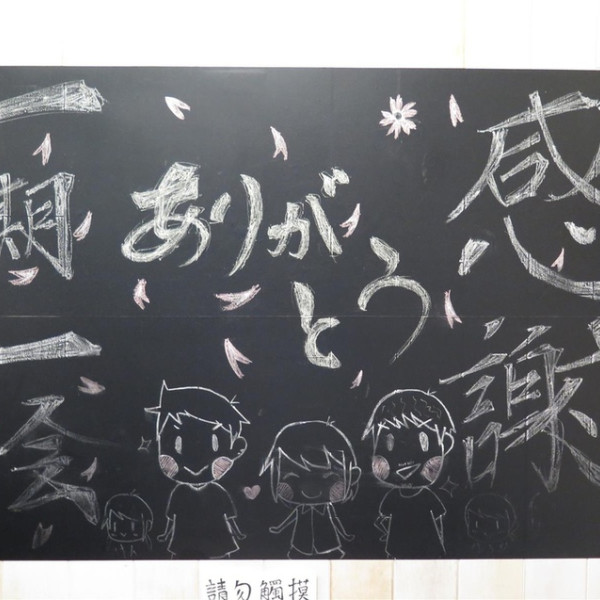 感謝
ありが
とう
一期一会
請勿觸摸